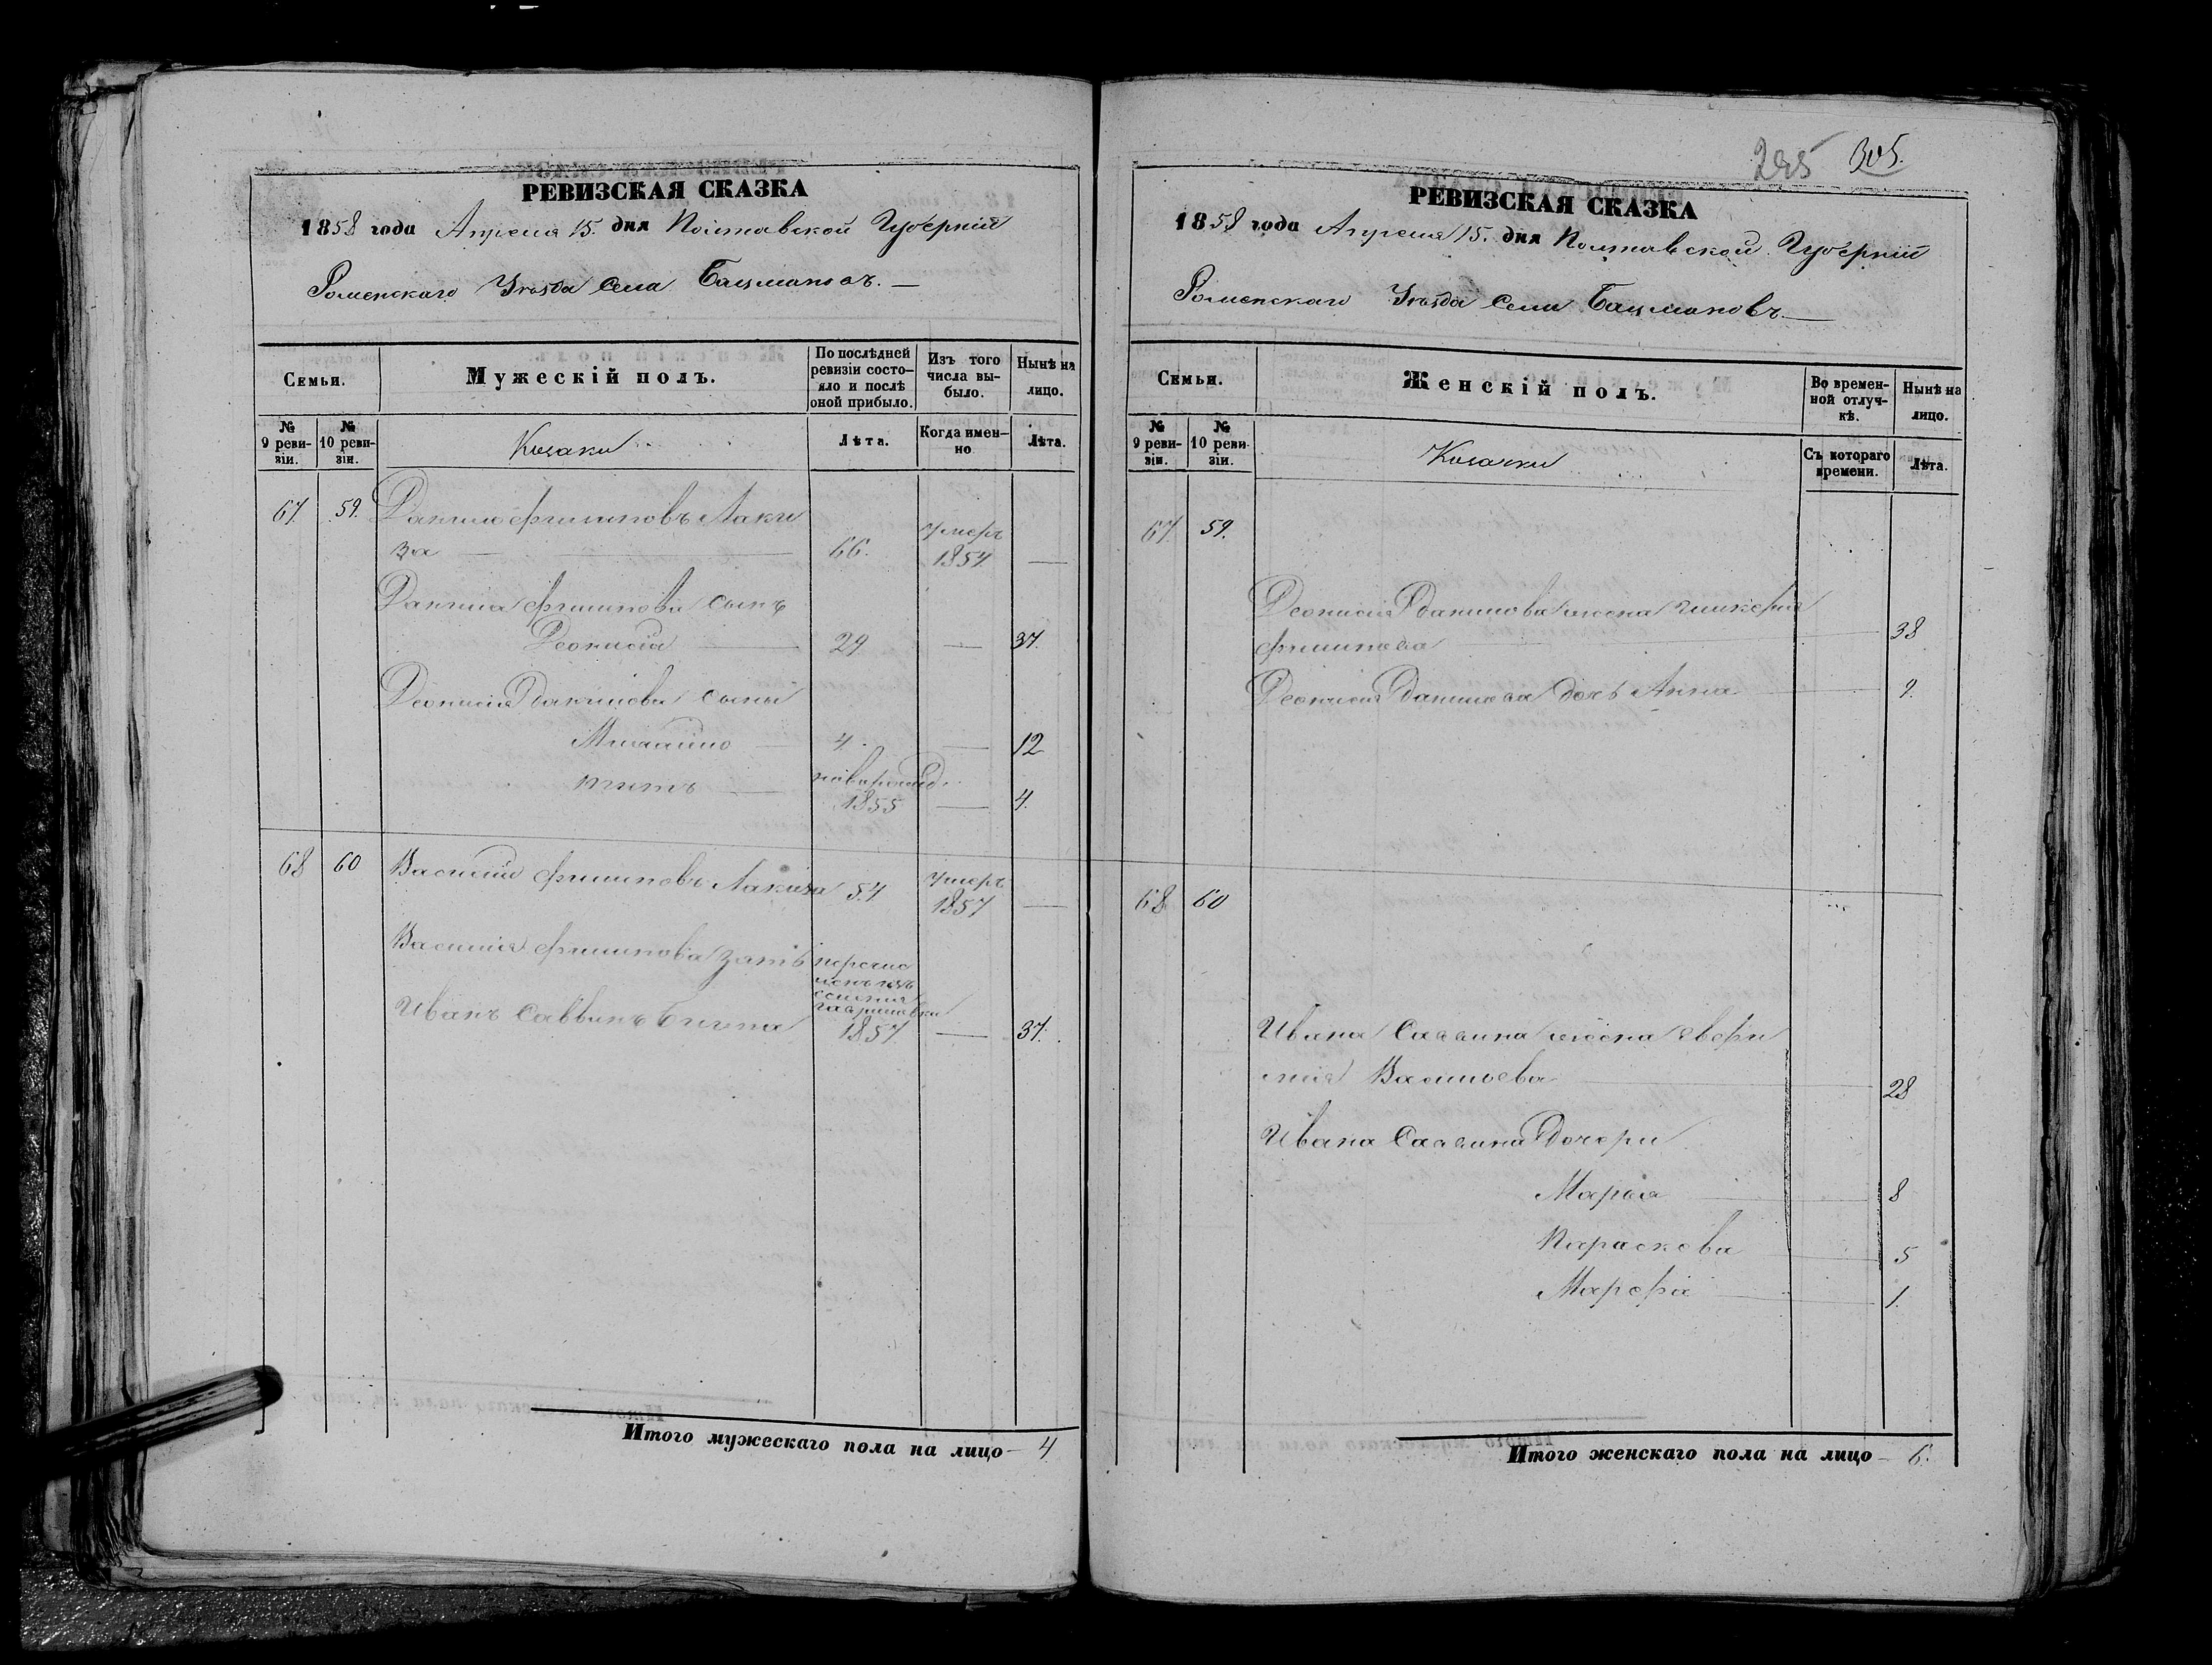 РЕВИЗСКАЯ СКАЗКА
1858 года Апреля 15. дня Полтавской Губерніи
Роменскаго Уѣзда Села Бацмановъ.
Семьи.
Мужескій полъ.
По послѣдней ревизіи состояло и послѣ оной прибыло.
Изъ того числа выбыло.
Нынѣ на лицо.
№ 9 ревизіи.
№ 10 ревизіи.
Козаки
Лѣта.
Когда именно
Лѣта.
67. 59. Данило Филиповъ Лаки
за 66. умеръ 1854
Данила Филипова сынъ
Деонисій 29 37.
Деонисія Данилова сыны
Михайло 4. 12
Титъ новорожд. 1855 4.
68 60 Василій Филиповъ Лакиза 54 умеръ 1857
Василія Филипова зять перечис
ленъ изъ
Иванъ Саввинъ 1857 37.
Итого мужескаго пола на лицо 4
285 305.
РЕВИЗСКАЯ СКАЗКА
1858 года Апреля 15. дня Полтавской Губерніи
Роменскаго Уѣзда Села Бацмановъ.
Семьи.
Женскій полъ.
Во временной отлучкѣ.
Нынѣ на лицо.
№ 9 ревизіи.
№ 10 ревизіи.
Козачки
Съ котораго времени.
Лѣта.
67. 59.
Деонисія Данилова жена Гликерія
Филипова 38
Деонисія Данилова дочь Анна 9.
68 60
Ивана Саввина жена Евфи
мія Васильева 28
Ивана Саввина Дочери
Марья 8
Параскева 5
Марфа 1.
Итого женскаго пола на лицо 6.